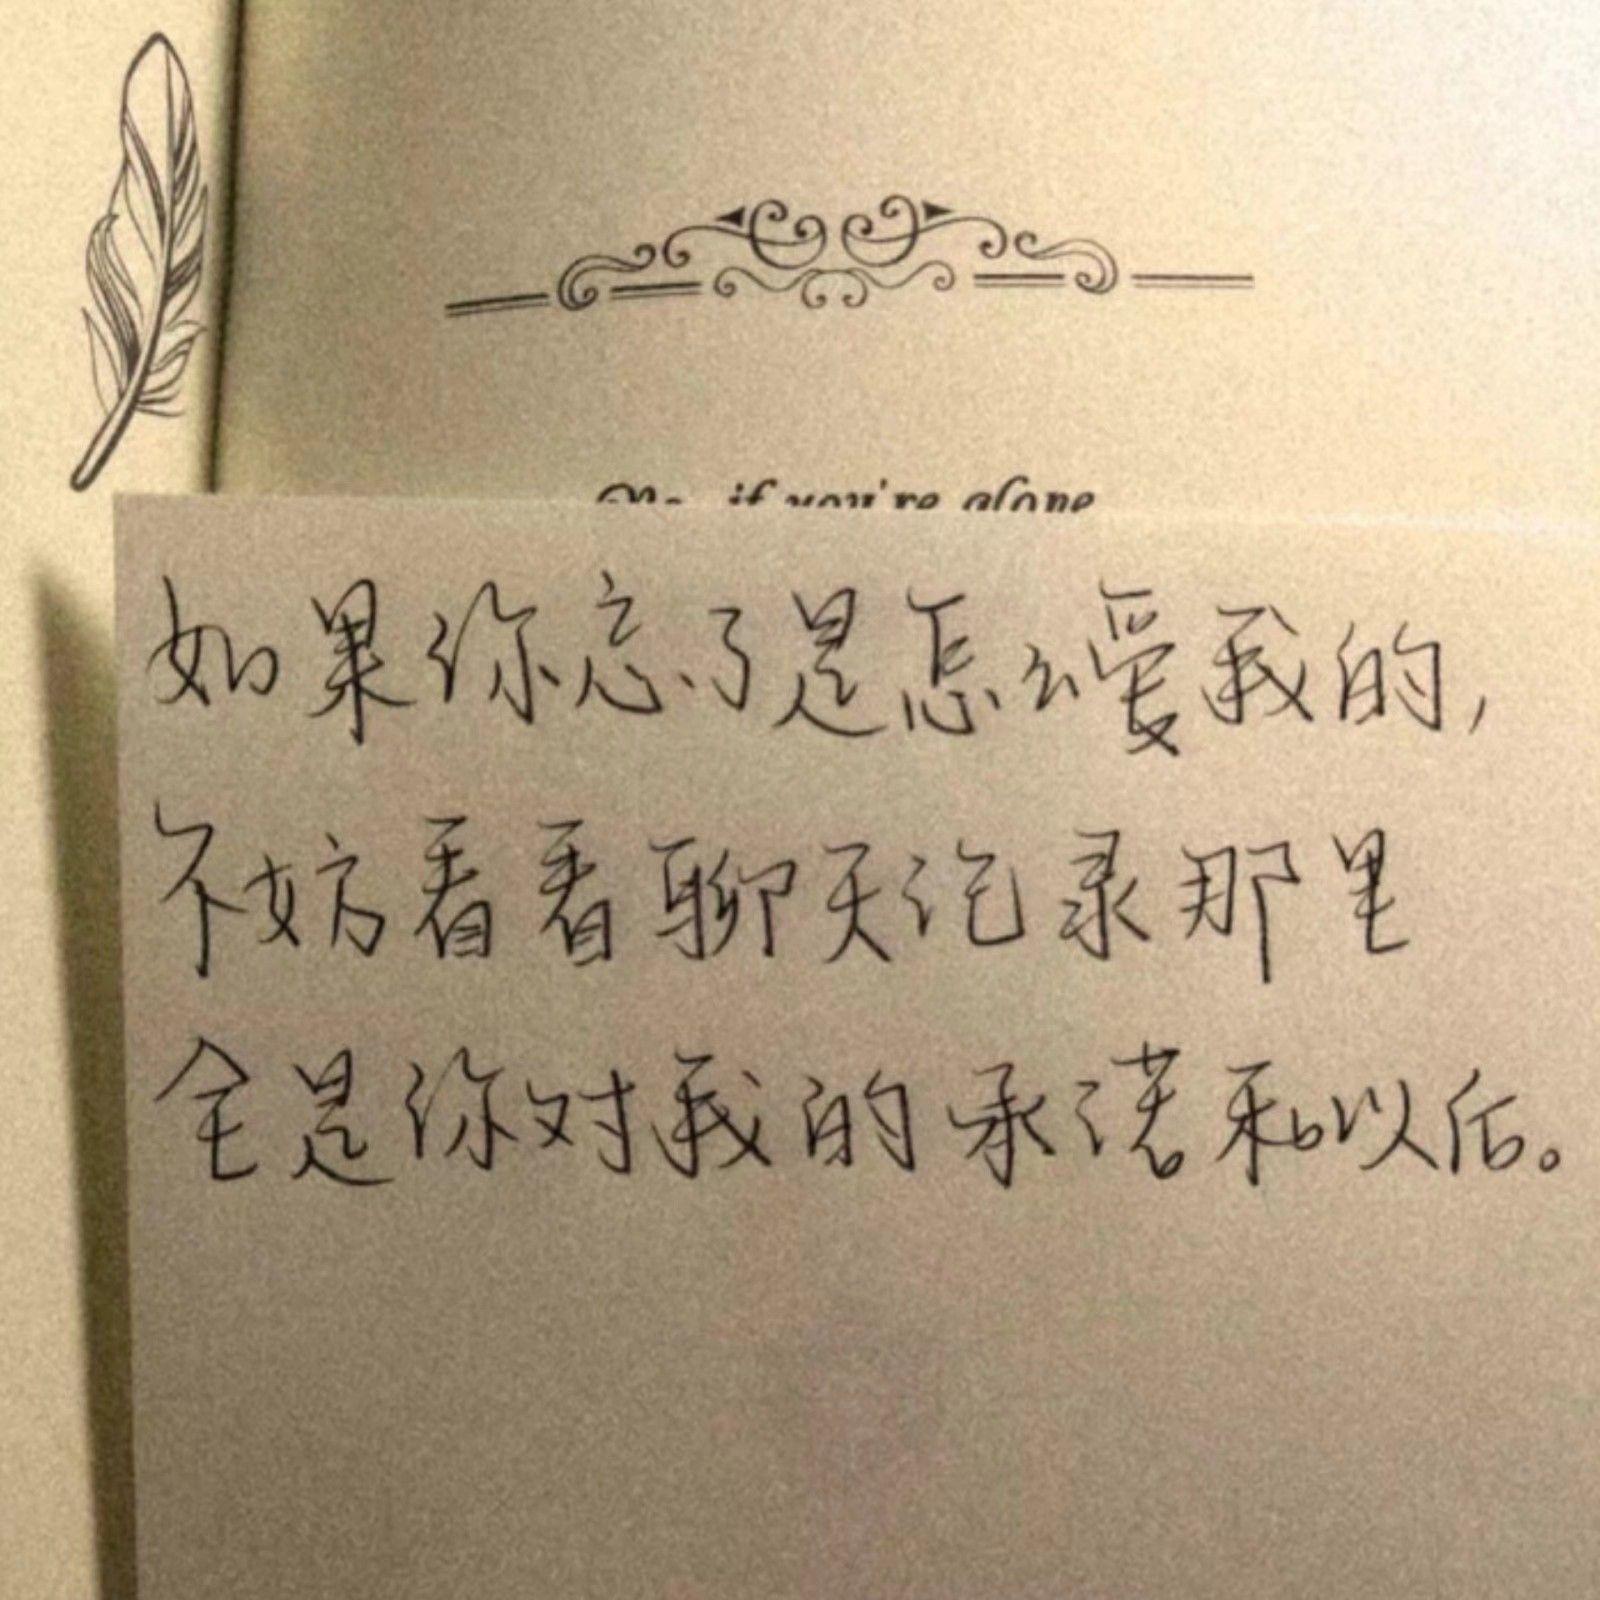 if you're alone
如果你忘了是怎么爱我的,
不妨看看聊天记录那里
全是你对我的承诺和以后。